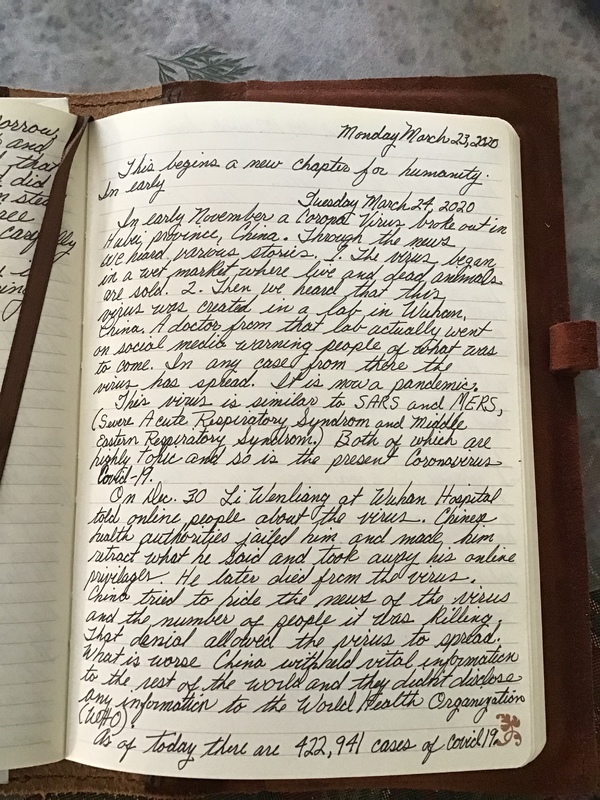 orrow,
and
that
did
n stea
ree
carefully
Monday March 23, 2020
This begins a new chapter for humanity.
In early
Tuesday March 24, 2020
In early November a Corona Virus broke out in
Hubei province, China. Through the news
we heard various stories. 1. The virus began
in a wet market where live and dead animals
are sold. 2. Then we heard that this
virus was created in a lab in Wuhan,
China. A doctor from that lab actually went
on social media warning people of what was
to come. In any case from there the
virus has spread. It is now a pandemic.
This virus is similar to SARS and MERS,
(Severe Acute Respiratory Syndrom and Middle
Eastern Respiratory Syndrom.) Both of which are
highly toxic and so is the present Coronavirus
Covid-19.
On Dec. 30 Li Wenliang at Wuhan Hospital
told online people about the virus. Chinese
health authorities jailed him and made him
retract what he said and took away his online
privilages. He later died from the virus.
China tried to hide the news of the virus
and the number of people it was killing,
That denial allowed the virus to spread.
What is worse China withheld vital information
to the rest of the world and they didn't disclose
any information to the World Health Organization
(WHO)
As of today there are 422,941 cases of Covid19.